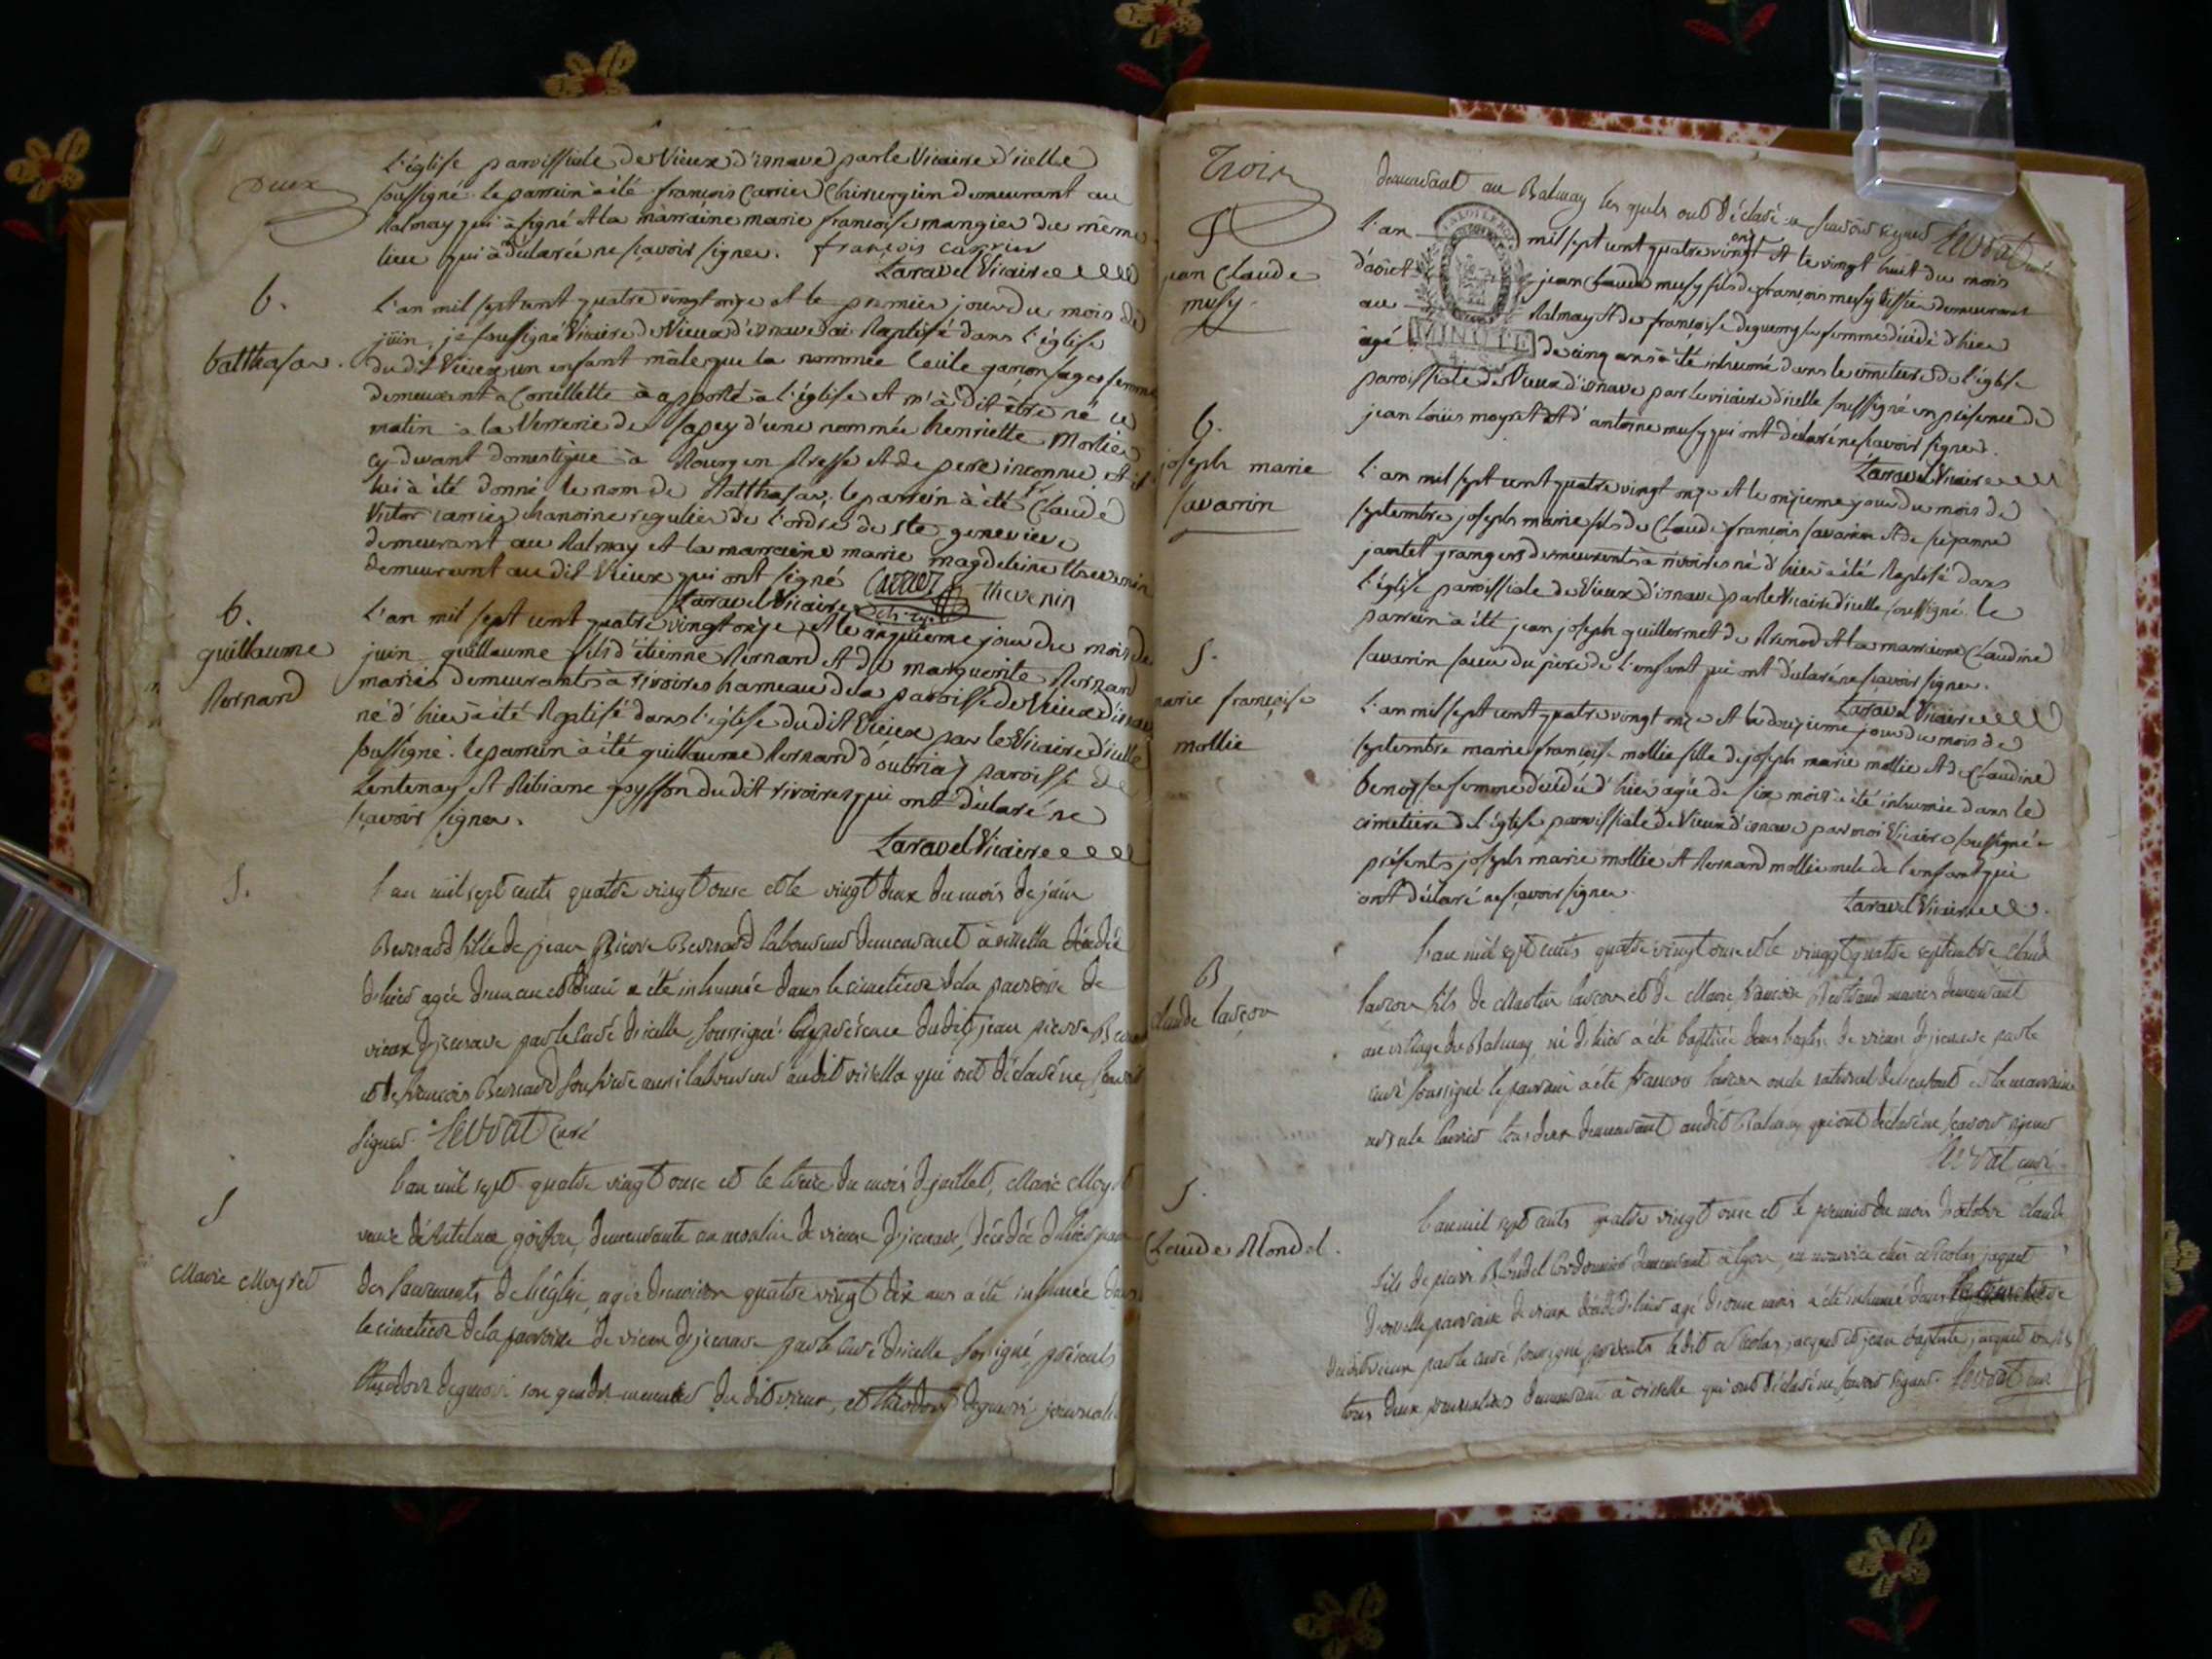 Deux
l'églife paroiffiale de Vieux d'isnave par le Vicaire d'icelle
fouffigné. le parrein à été françois Carrier Chirurgien demeurant au
Balmay qui à figné et la marraine marie françoife mangier du même
lieu qui à déclarée ne fçavoir figner. françois carrier
Laravel Vicaire
b.
balthafar.
L'an mil fept cent quatre vingt onze et le premier jour du mois de
juin, je fouffigné Vicaire de Vieux d'isnave ai Baptifé dans l'églife
du dit Vieux un enfant mâle que la nommée Cecile garçon fage femme
demeurant à Corcellette à apporté à l'églife et m'à dit être né ce
matin à la Verrerie de Sapey d'une nommée henriette Mortier
cy devant domestique à Bourg en Breffe et de pere inconnu, et il
lui à été donné le nom de Balthafar; le parrein à été Claude
Victor carrier chanoine regulier de l'ordre de ste genevieve
demeurant au Balmay et la marraine marie magdeleine thevenin
demeurant au dit Vieux qui ont figné Carrier thevenin
Laravel Vicaire
b.
guillaume
Bernard
L'an mil fept cent quatre vingt onze et le cinquieme jour du mois de
juin guillaume fils d'étienne Bernard et de marguerite Bernard
mariés demeurants à rivoires hameau de la paroiffe de Vieux d'isnave
né d'hier à été Baptifé dans l'églife du dit Vieux par le Vicaire d'icelle
fouffigné. le parrein à été guillaume Bernard d'outriaz paroiffe de
Lentenay et Bibiane goyffon du dit rivoires qui ont déclaré ne
fçavoir figner.
Laravel Vicaire
S.
L'an mil sept cents quatre vingt onze et le vingt deux du mois de juin
Bernard fille de jean Pierre Bernard laboureur demeurant à décédée
d'hier agée d'un an et demi a été inhumée dans le cimetiere de la parroisse de
vieux d'izenave par le curé d'icelle soussigné. en présence dudit jean pierre Bernard
et de françois Bernard son frere aussi laboureur audit qui ont déclaré ne scavoir
signer. Levrat curé
S
Marie Moyret
L'an mil sept quatre vingt onze et le treize du mois de juillet, Marie Moyret
veuve d'Antelme goiffon, demeurante au moulin de vieux d'izenave, décédée d'hier
des sacrements de l'église, agée d'environ quatre vingt dix ans a été inhumée dans
le cimetiere de la parroisse de vieux d'izenave par le curé d'icelle sousigné, présents
théodore deguerri son gendre meunier du dit vieux, et théodore deguerri journalier
Trois
demeurant au Balmay les quels ont déclaré ne scavoir signer Levrat curé
S
jean Claude
mufy.
L'an mil fept cent quatre vingt onze et le vingt huit du mois
d'aoûct jean claude mufy fils de françois mufy tiffier demeurant
au Balmay et de françoife deguerry fa femme décédé d'hier
âgé de cinq ans à été inhumé dans le cimetiere de l'églife
paroiffiale de Vieux d'isnave par le vicaire d'icelle fouffigné en préfence de
jean loüis moyret et d'antoine mufy qui ont déclaré ne fçavoir figner.
Laravel Vicaire
MINUTE
b.
jofeph marie
favarin
L'an mil fept cent quatre vingt onze et le onzieme jour du mois de
feptembre jofeph marie fils de Claude françois favarin et de fuzanne
jantet grangers demeurents à rivoires né d'hier à été Baptifé dans
l'églife paroiffiale de Vieux d'isnave par le Vicaire d'icelle fouffigné. le
parrein à été jean jofeph guillermet de Brenod et la marraine Claudine
favarin foeur du pere de l'enfant qui ont déclaré ne fçavoir figner.
Laravel Vicaire
S.
marie françoife
mollie
L'an mil fept cent quatre vingt onze et le douzieme jour du mois de
feptembre marie françoife mollie fille de jofeph marie mollie et de Claudine
benoffe fa femme décédée d'hier agée de fix mois à été inhumée dans le
cimetiere de l'églife paroiffiale de Vieux d'isnave par moi Vicaire fouffigné
préfents jofeph marie mollie et Bernard mollie oncle de l'enfant qui
ont déclaré ne fçavoir figner.
Laravel Vicaire
B
claude lascon
L'an mil sept cents quatre vingt onze et le vingt quatre septembre claude
lascon fils de Martin lascon et de Marie françoise Bertrand mariés demeurant
au village du Balmay, né d'hier a été baptisé dans l'église de vieux d'izenave par le
curé soussigné le parrain a été françois lascon oncle naturel de l'enfant et la marraine
carrier tous deux demeurant audit Balmay qui ont déclaré ne scavoir signer
Levrat curé
S.
Claude Blondel.
L'an mil sept cents quatre vingt onze et le premier du mois d'octobre claude
fils de pierre Blondel cordonnier demeurant à lyon, en nourrice chés nicolas jaquet
parroisse de vieux décédé d'hier agé d'onze mois a été inhumé dans le cimetiere
dudit vieux par le curé soussigné, présents ledit nicolas jacquet et jean baptiste jacquet son fils
tous deux journaliers demeurant à qui ont déclaré ne scavoir signer. Levrat curé